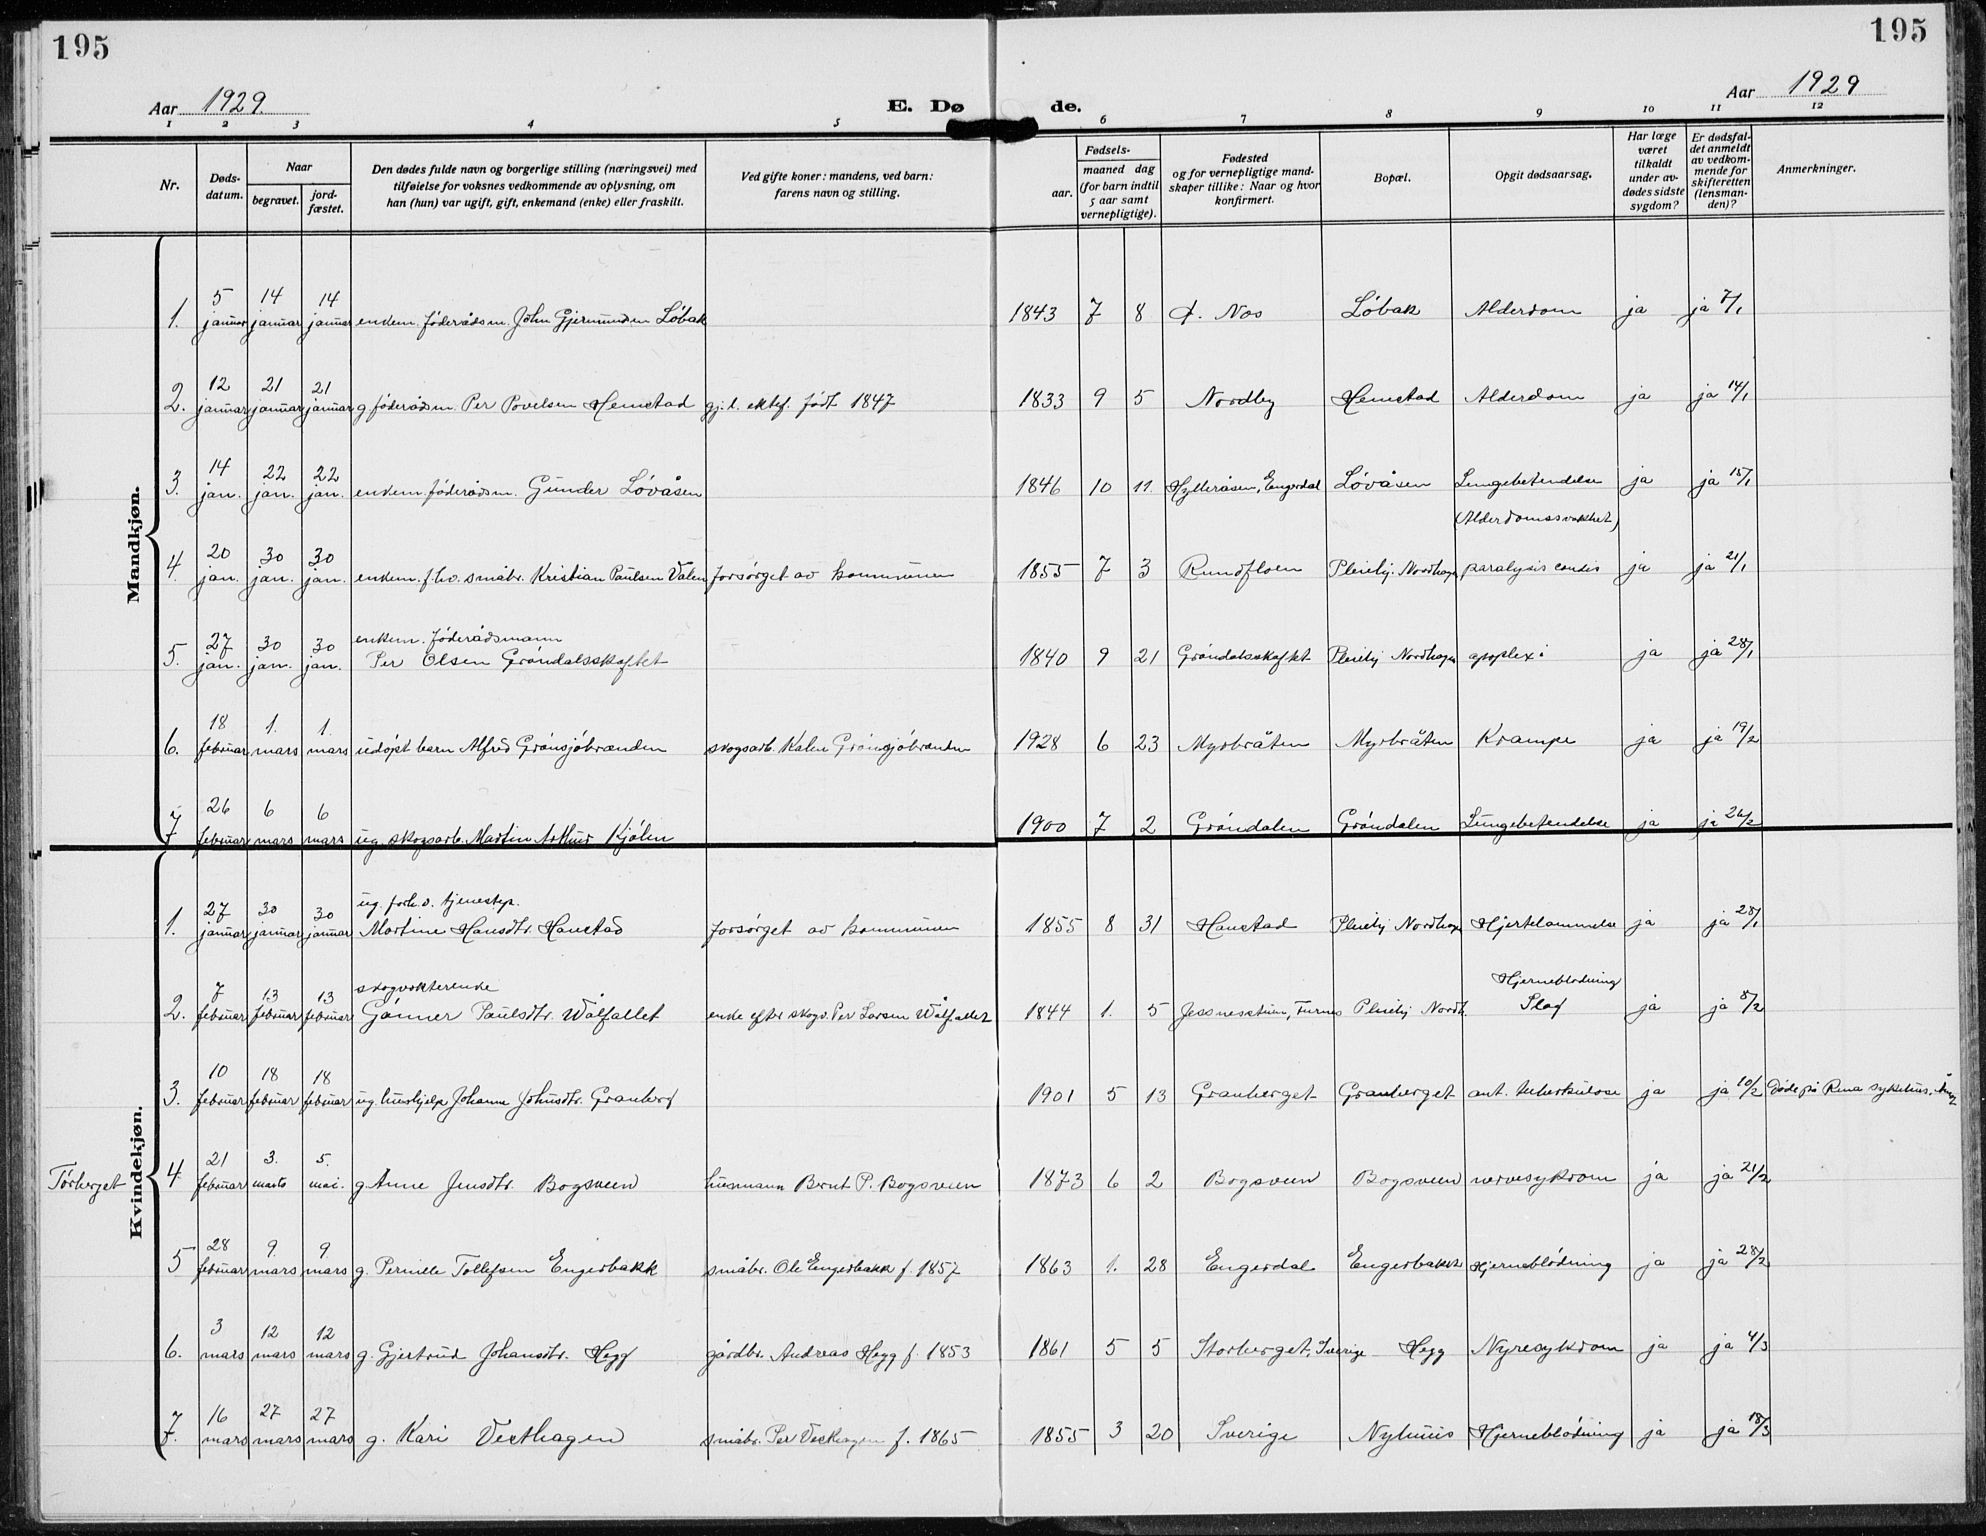 195
195
Aar 1929.
E. Dø
de.
Aar 1929
1 2 3 4 5 6 7 8 9 10 11 12
Nr.
Døds-
datum.
Naar
begravet.
jord-
fæstet.
Den dødes fulde navn og borgerlige stilling (næringsvei) med
tilføielse for voksnes vedkommende av oplysning, om
han (hun) var ugift, gift, enkemand (enke) eller fraskilt.
Ved gifte koner: mandens, ved barn:
farens navn og stilling.
Fødsels-
aar.
maaned dag
(for barn indtil
5 aar samt
vernepligtige).
Fødested
og for vernepligtige mand-
skaper tillike: Naar og hvor
konfirmert.
Bopæl.
Opgit dødsaarsag.
Har læge
været
tilkaldt
under av-
dødes sidste
sygdom?
Er dødsfal-
det anmeldt
av vedkom-
mende for
skifteretten
(lensman-
den)?
Anmerkninger.
Mandkjøn.
1. 5 januar 14 januar 14 januar enkem. föderådsm. John Gjermundsen Löbak 1843 7 8 Nos Löbak Alderdom ja ja 7/1
2. 12 januar 21 januar 21 januar g föderådsm. Per Povelsen Hemstad gj. l. ektef. födt 1847 1833 9 5 Nordby Hemstad Alderdom ja ja 14/1
3. 14 jan. 22 jan. 22 jan. enkem. föderådsm. Gunder Lövåsen 1846 10 11. Hylleråsen, Engerdal Lövåsen Lungebetendelse ja ja 15/1
(Alderdomssvakhet)
4. 20 jan. 30 jan. 30 jan. enkem. f.hv. småbr. Kristian Paulsen Valen forsörget av kommunen 1855 7 3 Rundfloen Pleiehj. Nordhagen paralysis cordis ja ja 21/1
5. 27 jan. 30 jan. 30 jan. enkem. föderådsmann
Per Olsen Gröndalsskaftet 1840 9 21 Gröndalsskaftet Pleiehj Nordhagen apoplexi ja ja 28/1
6. 18 februar 1. mars 1. mars udöpt barn Alfred Grönsjöbrænden skogsarb. Kalen Grönsjöbrænden 1928 6 23 Myrbråten Myrbråten Krampe ja ja 19/2
7 26 februar 6 mars 6 mars ug. skogsarb. Martin Arthur Kjölen 1900 7 2 Gröndalen Gröndalen Lungebetendelse ja ja 26/2
Kvindekjøn.
1. 27 januar 30 januar 30 januar ug. forh.v. tjenestep.
Martine Hansdtr. Hanstad forsörget av kommunen 1855 8 31 Hanstad Pleiehj Nordhagen Hjertelammelse ja ja 28/1
2. 7 februar 13 februar 13 februar skogvokterenke
Gönner Paulsdtr. Wålfallet enke efter skogv. Per Larsen Wålfallet 1844 1. 5 Jessnesstuen, Furnes Pleiehj Nordh. Hjerneblödning
Slag ja ja 8/2
3. 10 februar 18 februar 18 februar ug. hushjelp Johanne Johnsdtr. Granberg 1901 5 13 Granberget Granberget ant. tuberkulose ja ja 10/2 Döde på Rena sykehus,
Törberget
4. 21 februar 3. marts 5. mai. g. Anne Jensdtr. Bogsveen husmann Bernt P. Bogsveen 1873 6 2 Bogsveen Bogsveen nervesykdom ja ja 21/2
5 28 februar 9. mars 9. mars g. Pernille Tollefsen Engerbakk småbr. Ole Engerbakk f. 1857 1863 1. 28 Engerdal Engerbakk Hjerneblödning ja ja 28/2
6. 3 mars 12 mars 12 mars g. Gjertrud Johansdtr. Hegg gårdbr. Andreas Hegg f. 1853 1861 5 5 Storberget, Sverige Hegg Nyresykdom ja ja 4/3
7. 16 mars 27 mars 27 mars g. Kari Vesthagen småbr. Per Vesthagen f. 1865 1855 3 20 Sverige Nyhuus Hjerneblödning ja ja 18/3